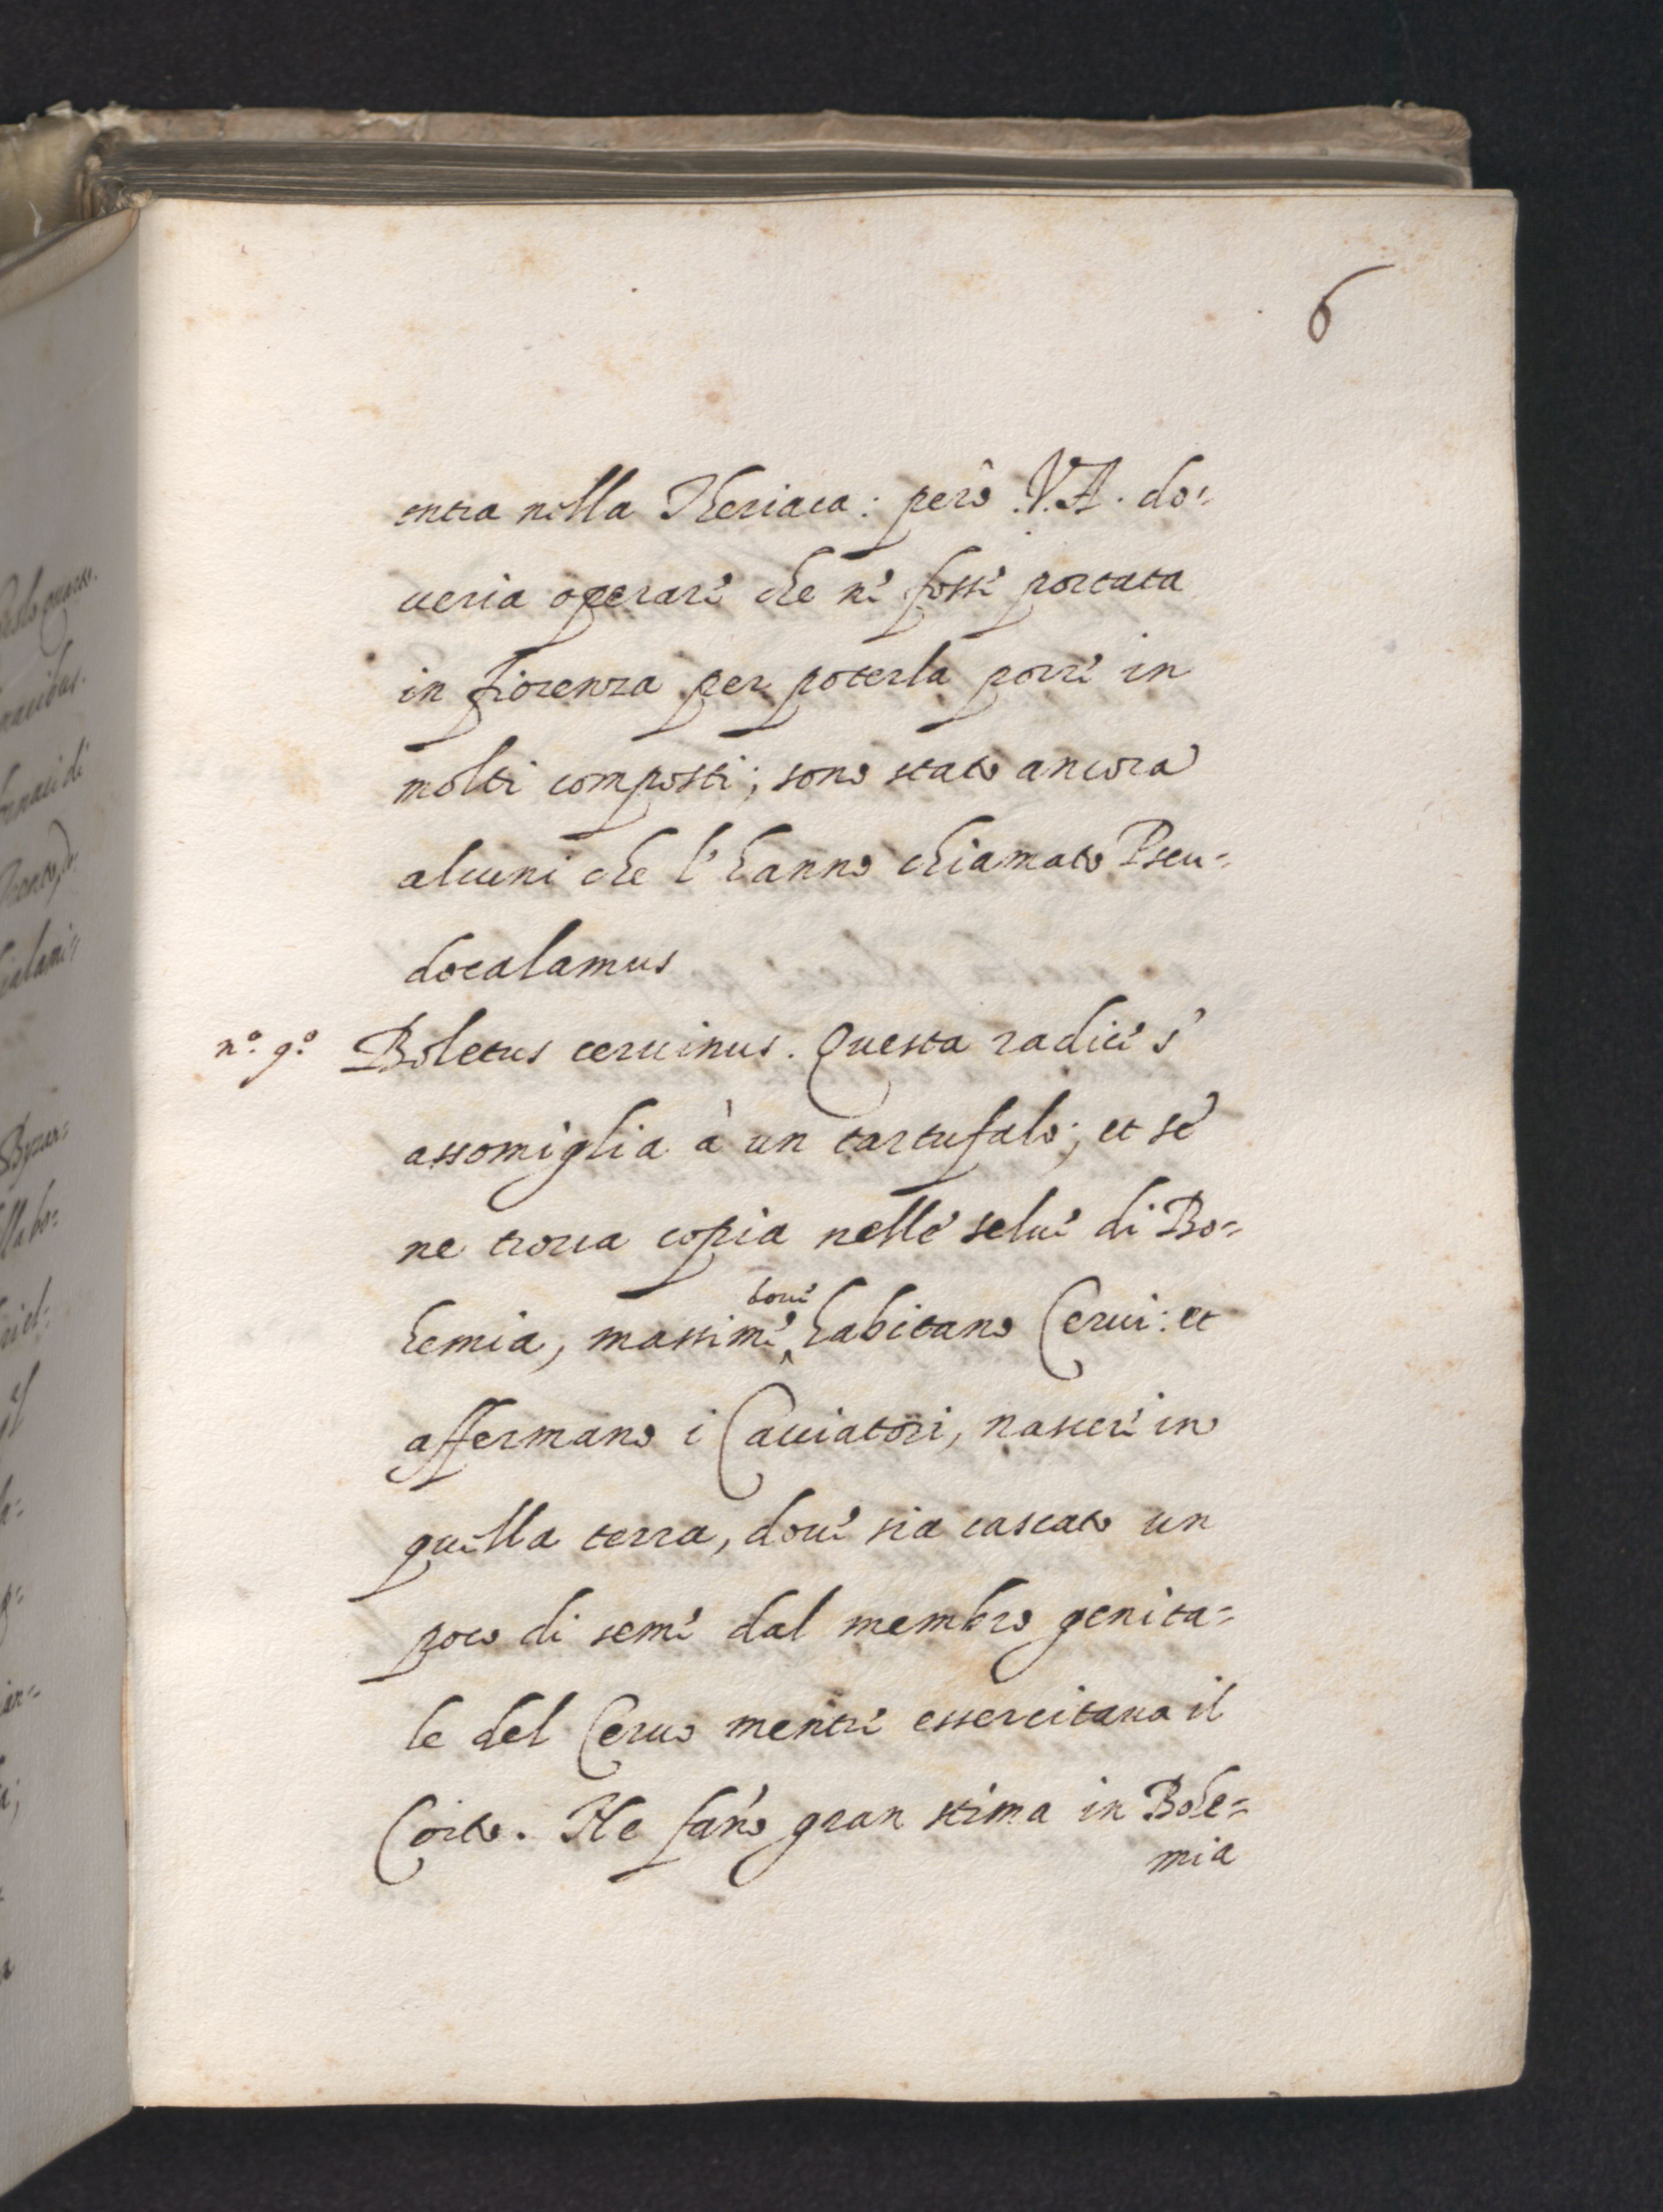 6
entra nella Theriaca: però V.A. do=
ueria operare che ne fosse portata
in fiorenza per poterla porre in
molti composti; sono stato ancora
alcuni che l'hanno chiamato Pseu=
docalamus
nº. 9º Boletus ceruinus. Questa radice s'
assomiglia à un tartufalo; et se
ne troua copia nelle selue di Bo=
hemia, massime doue habitano Cerui: et
affermano i Cacciatori, nascere in
quella terra, doue sia cascato un
poco di seme dal membro genita=
le del Ceruo mentre essercitaua il
Coito. Ne fano gran stima in Bohe=
mia